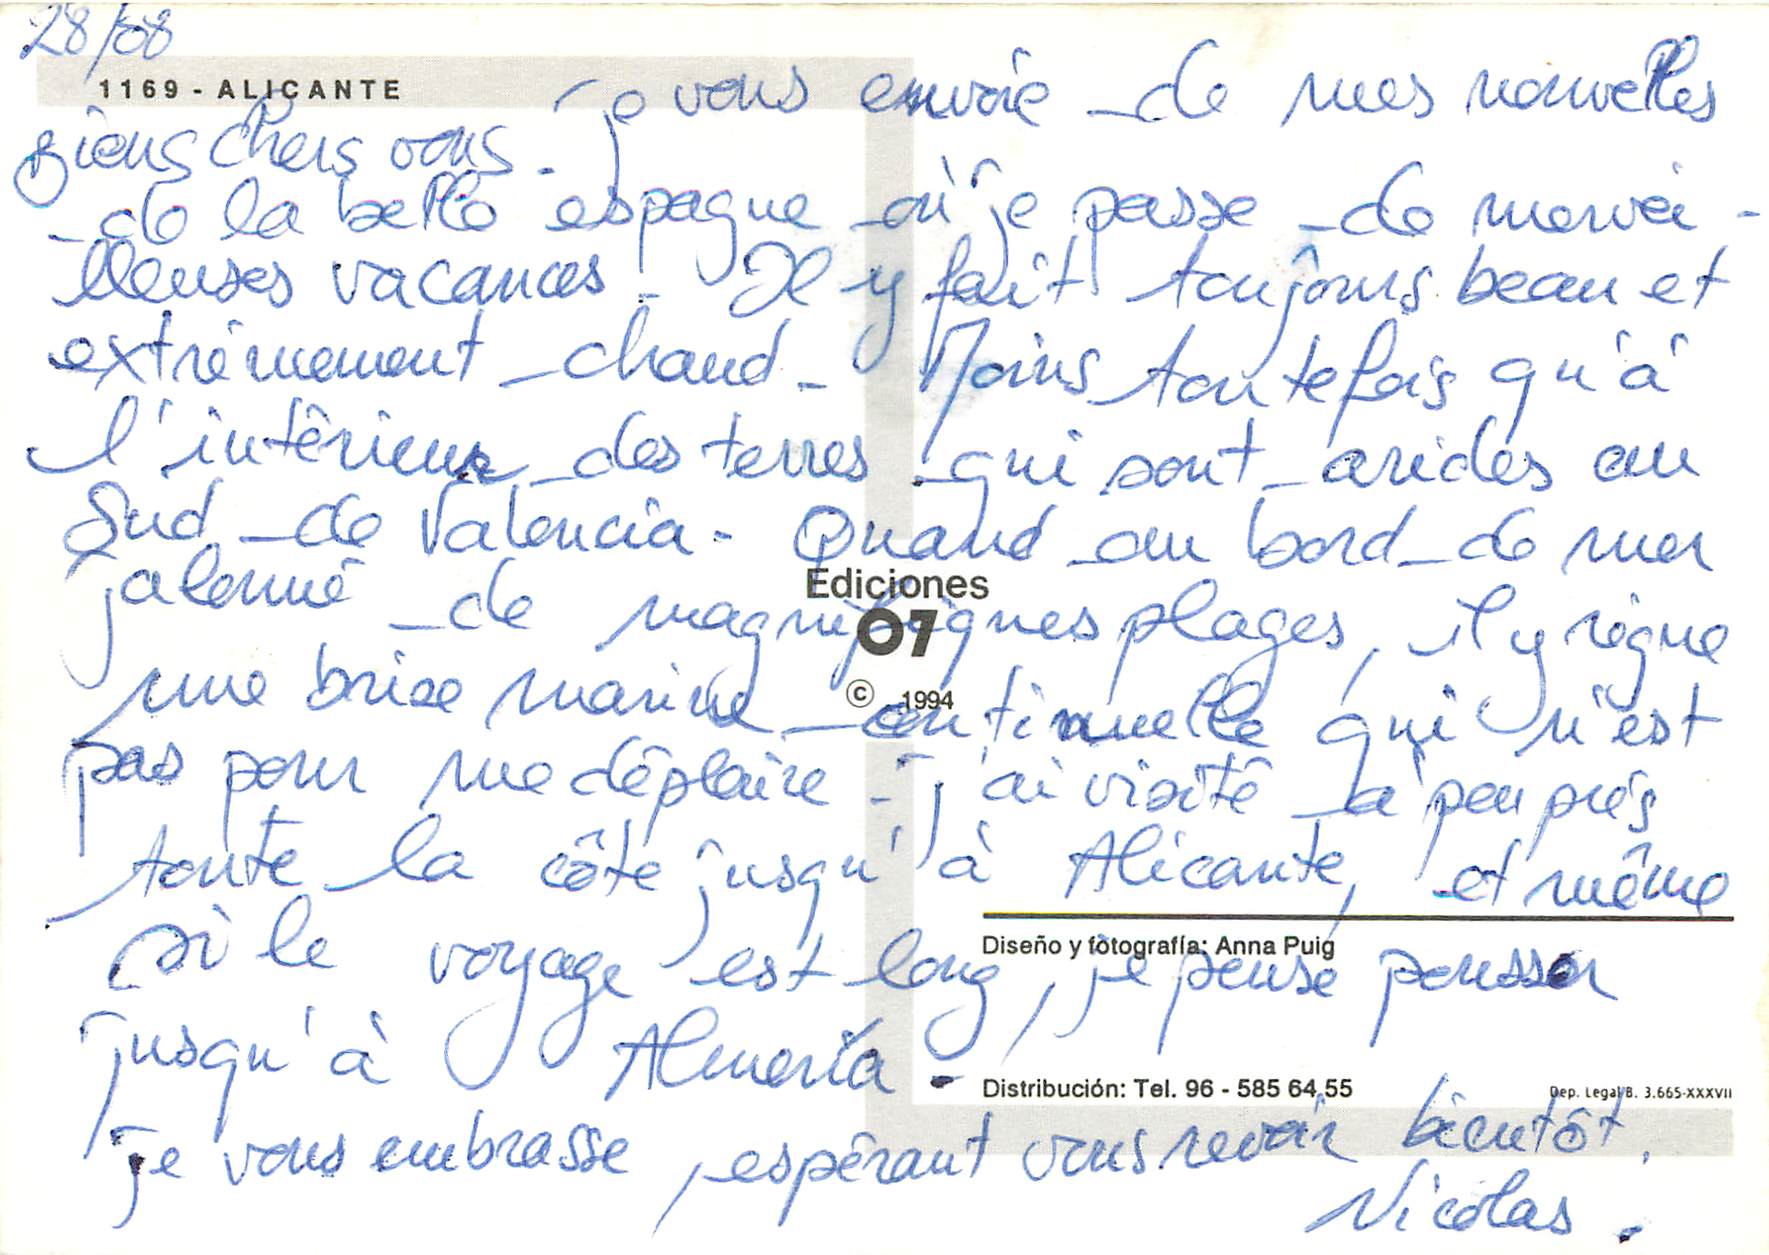 28/08
1169 - ALICANTE
Biens chers vous. je vous envoie de mes nouvelles
de la belle espagne où je passe de mervei-
lleuses vacances. Il y fait toujours beau et
extrêmement chaud. Moins toutefois qu'à
l'intérieur des terres qui sont arides au
Sud de Valencia. Quand au bord de mer
jalonné de magnifiques plages, il y règne
une brise marine continuelle qui n'est
pas pour me déplaire. j'ai visité à peu près
toute la côte jusqu'à Alicante, et même
si le voyage est long, je pense pousser
jusqu'à Almeria.
je vous embrasse, espérant vous revoir bientôt.
Nicolas.
Ediciones
07
© 1994
Diseño y fotografía: Anna Puig
Distribución: Tel. 96 - 585 64 55
Dep. Legal B. 3.665-XXXVII